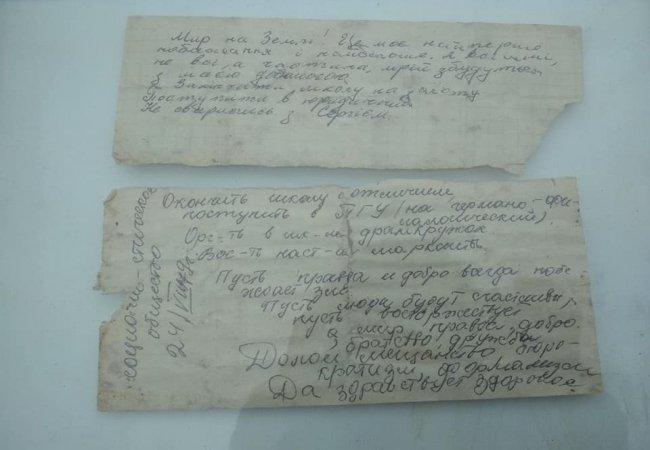 Мир на Землі! Це моє найперше
побажання і найбільше. А восени,
не всі, а частина, мрій збудуться
з моєю допомогою
Закінчити школу на
Поступити в юридичний
Не сваритись з Сергієм.
Окончить школу с отличием
поступить в ПГУ (на германо-фи-
лологический)
Орг-ть в шк-ле драмкружок
Вос-ть наст-их марксисто
Пусть правда и добро всегда побе-
ждает зло.
Пусть люди будут счастливы,
пусть восторжествует
мир, правда, добро.
братство, дружба
Долой мещанство, бюро-
кратизм, формализм
Да здравствует здоровое
социалис-стическое
общество
24/VIII